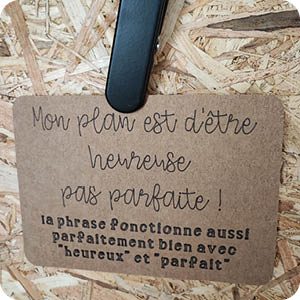 Mon plan est d'être
heureuse
pas parfaite !
la phrase fonctionne aussi
parfaitement bien avec
"heureux" et "parfait"